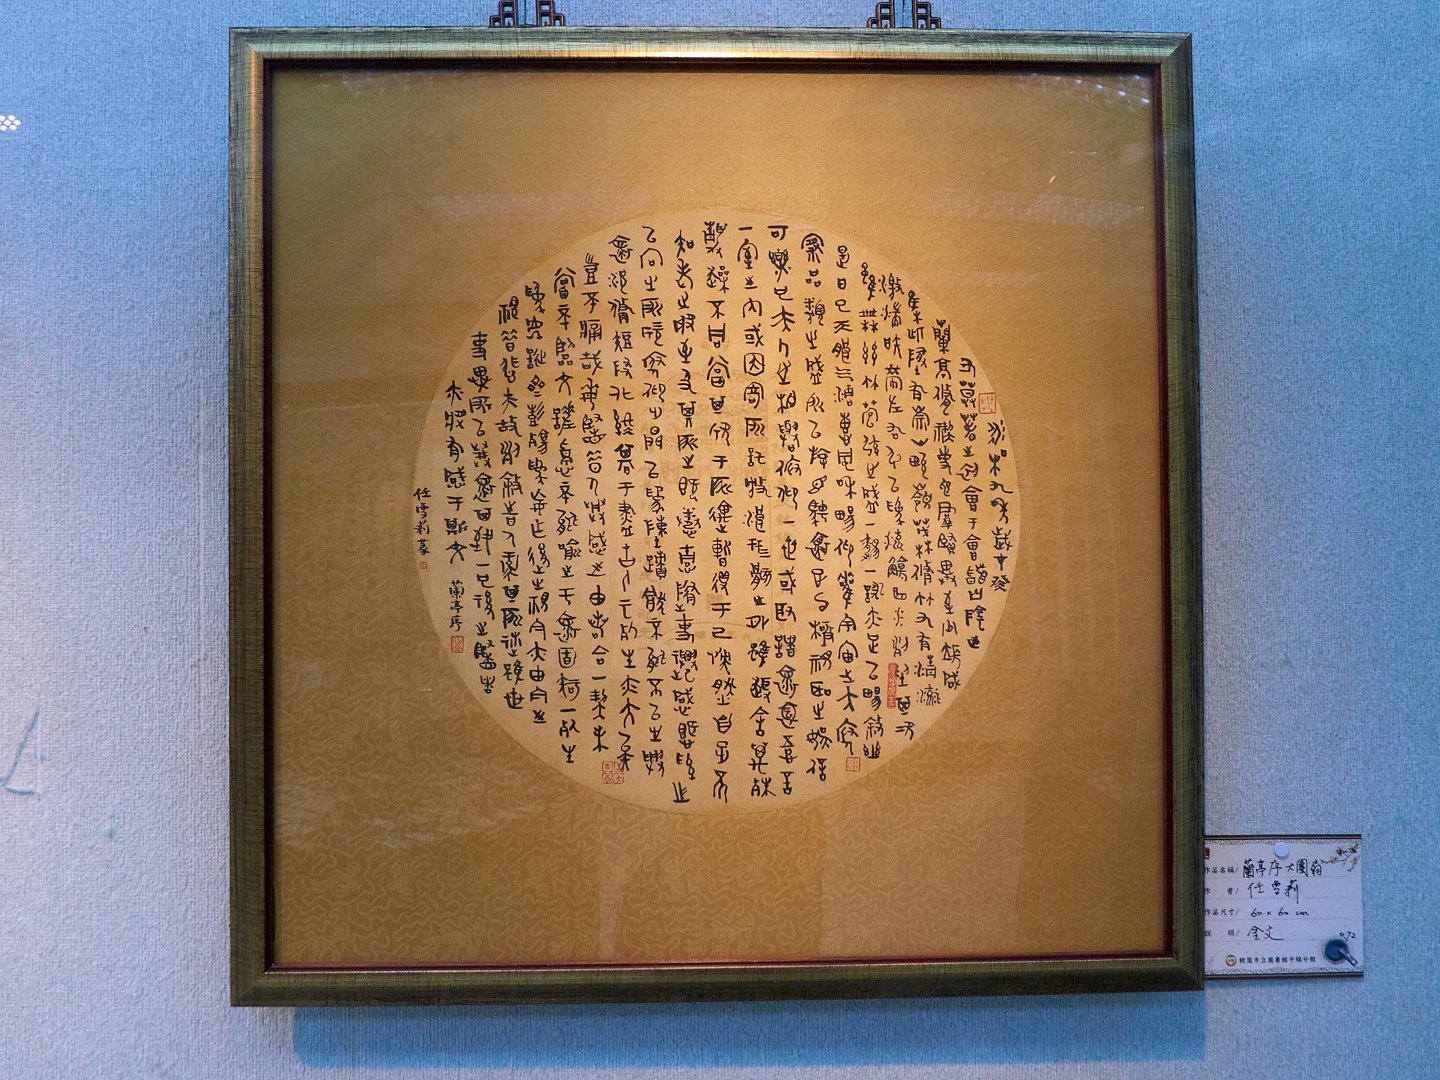 永和九年歲才癸
丑暮春之初會于會稽山陰之
蘭亭脩禊事也群賢畢至少長咸
集此地有崇山峻領茂林脩竹又有清流
激湍映帶左右引以為流觴曲水列坐其次
雖無絲竹管弦之盛一觴一詠亦足以暢敘幽情
是日也天朗氣清惠風和暢仰觀宇宙之大俯
察品類之盛所以遊目騁懷足以極視聽之娛信
可樂也夫人之相與俯仰一世或取諸懷抱悟言
一室之內或因寄所託放浪形骸之外雖趣舍萬殊
靜躁不同當其欣于所遇暫得于己快然自足不
知老之將至及其所之既倦情隨事遷感慨係之
矣向之所欣俛仰之間以為陳跡猶不能不以之興
懷況脩短隨化終期于盡古人云死生亦大矣
豈不痛哉每覽昔人興感之由若合一契未
嘗不臨文嗟悼不能喻之于懷固知一死生
為虛誕齊彭殤為妄作後之視今亦由今之
視昔悲夫故列敘時人錄其所述雖世
殊事異所以興懷其致一也後之覽者
亦將有感于斯文 蘭亭序
任雪莉篆
作品名稱/ 蘭亭序大團扇
作者/ 任雪莉
作品尺寸/ 60×60 cm
說明/ 金文
072
桃園市立圖書館平鎮分館